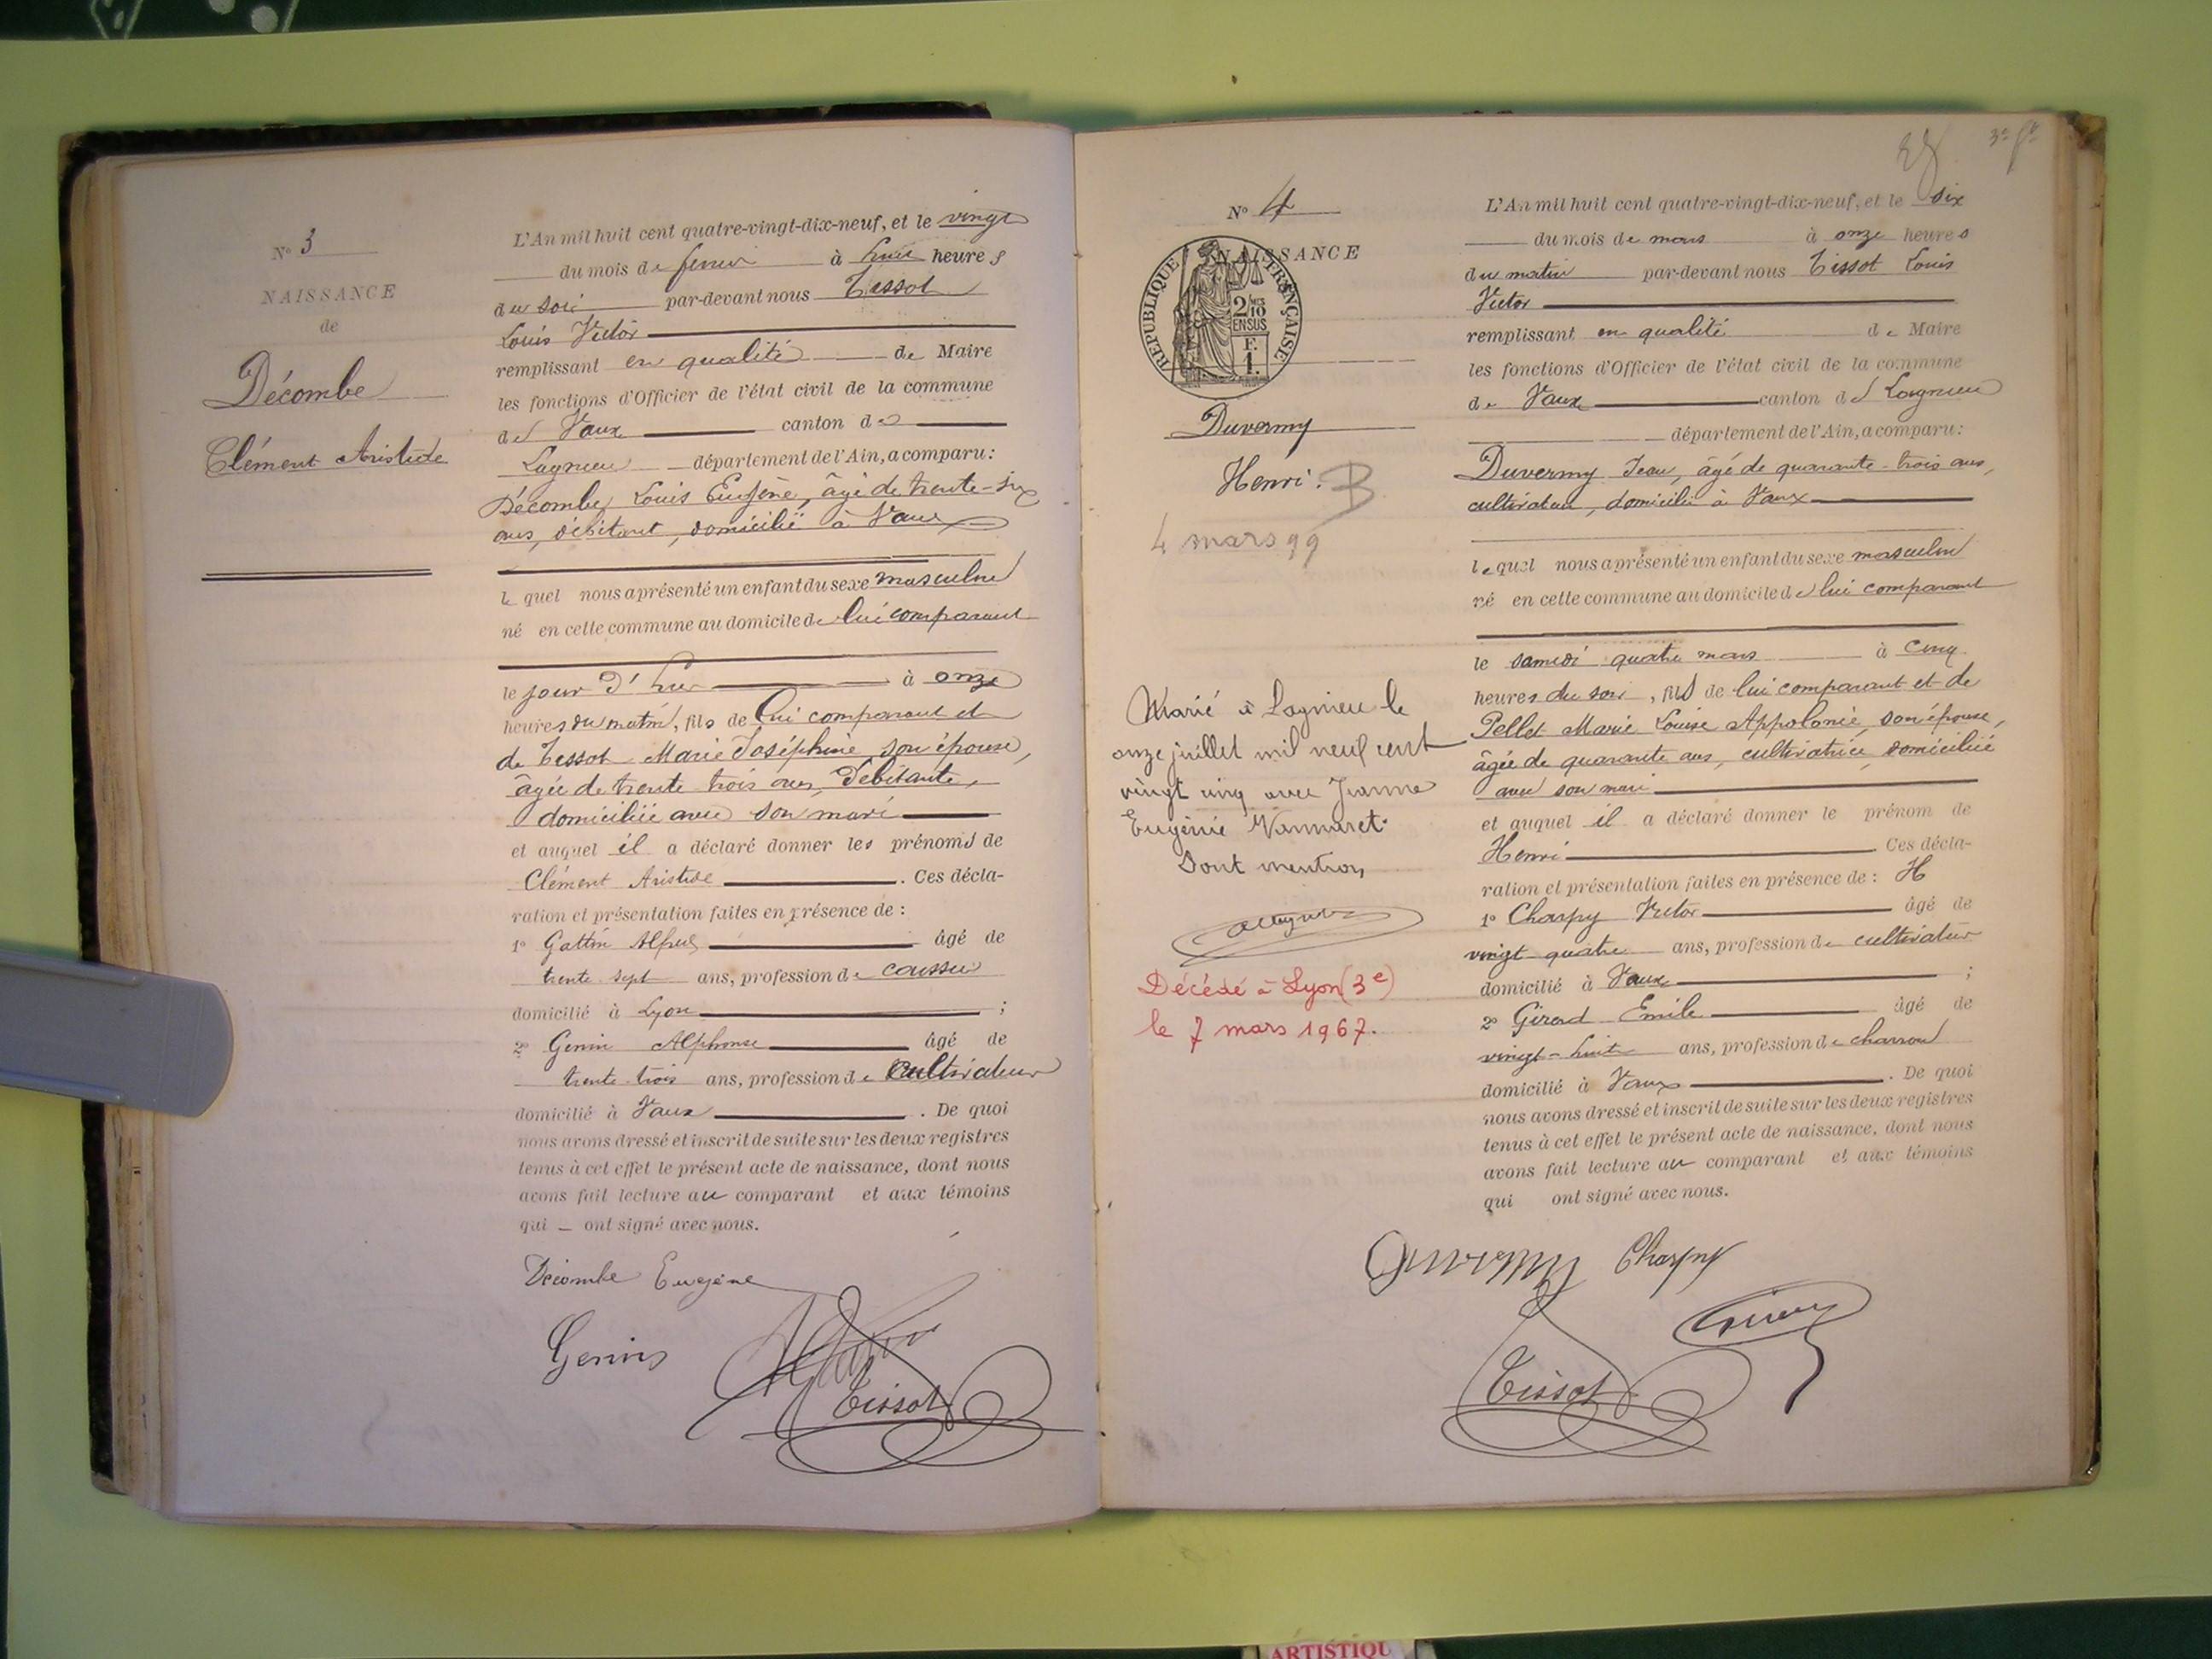 Nº 3
NAISSANCE
de
Décombe
Clément Aristide
L'An mil huit cent quatre-vingt-dix-neuf, et le vingt
du mois de à heures
du soir par-devant nous Tissot
Louis Victor
remplissant en qualité de Maire
les fonctions d'Officier de l'état civil de la commune
de Vaux canton de
Lagnieu département de l'Ain, a comparu :
Décombe Louis Eugène, âgé de trente-six
ans, débitant, domicilié à Vaux
lequel nous a présenté un enfant du sexe masculin
né en cette commune au domicile de lui comparant
le jour d'hui à onze
heures du matin, fils de lui comparant et
de Tissot Marie Joséphine son épouse,
âgée de trente trois ans, débitante,
domiciliée avec son mari
et auquel il a déclaré donner les prénoms de
Clément Aristide. Ces décla-
ration et présentation faites en présence de :
1º Gattin Alfred âgé de
trente sept ans, profession de
domicilié à Lyon ;
2º Genin Alphonse âgé de
trente-trois ans, profession de cultivateur
domicilié à Vaux. De quoi
nous avons dressé et inscrit de suite sur les deux registres
tenus à cet effet le présent acte de naissance, dont nous
avons fait lecture au comparant et aux témoins
qui ont signé avec nous.
Décombe Eugène
Genin
Tissot
3e ft
Nº 4
NAISSANCE
RÉPUBLIQUE FRANÇAISE
2/10 EN SUS
F. 1.
Duvermy
Henri.
4 mars 99
Marié à Lagnieu le
onze juillet mil neuf cent
vingt cinq avec Jeanne
Eugénie
Dont mention
Décédé à Lyon (3e)
le 7 mars 1967.
L'An mil huit cent quatre-vingt-dix-neuf, et le six
du mois de mars à onze heures
du matin par-devant nous Tissot Louis
Victor
remplissant en qualité de Maire
les fonctions d'Officier de l'état civil de la commune
de Vaux canton de Lagnieu
département de l'Ain, a comparu :
Duvermy Jean, âgé de quarante-trois ans,
cultivateur, domicilié à Vaux
lequel nous a présenté un enfant du sexe masculin
né en cette commune au domicile de lui comparant
le samedi quatre mars à cinq
heures du soir, fils de lui comparant et de
Pellet Marie Louise Appolonie, son épouse,
âgée de quarante ans, cultivatrice, domiciliée
avec son mari
et auquel il a déclaré donner le prénom de
Henri. Ces décla-
ration et présentation faites en présence de : H
1º Charpy Victor âgé de
vingt quatre ans, profession de cultivateur
domicilié à Vaux ;
2º Girerd Emile âgé de
vingt-huit ans, profession de charron
domicilié à Vaux. De quoi
nous avons dressé et inscrit de suite sur les deux registres
tenus à cet effet le présent acte de naissance, dont nous
avons fait lecture au comparant et aux témoins
qui ont signé avec nous.
Duvermy Charpy
Tissot
ARTISTIQU